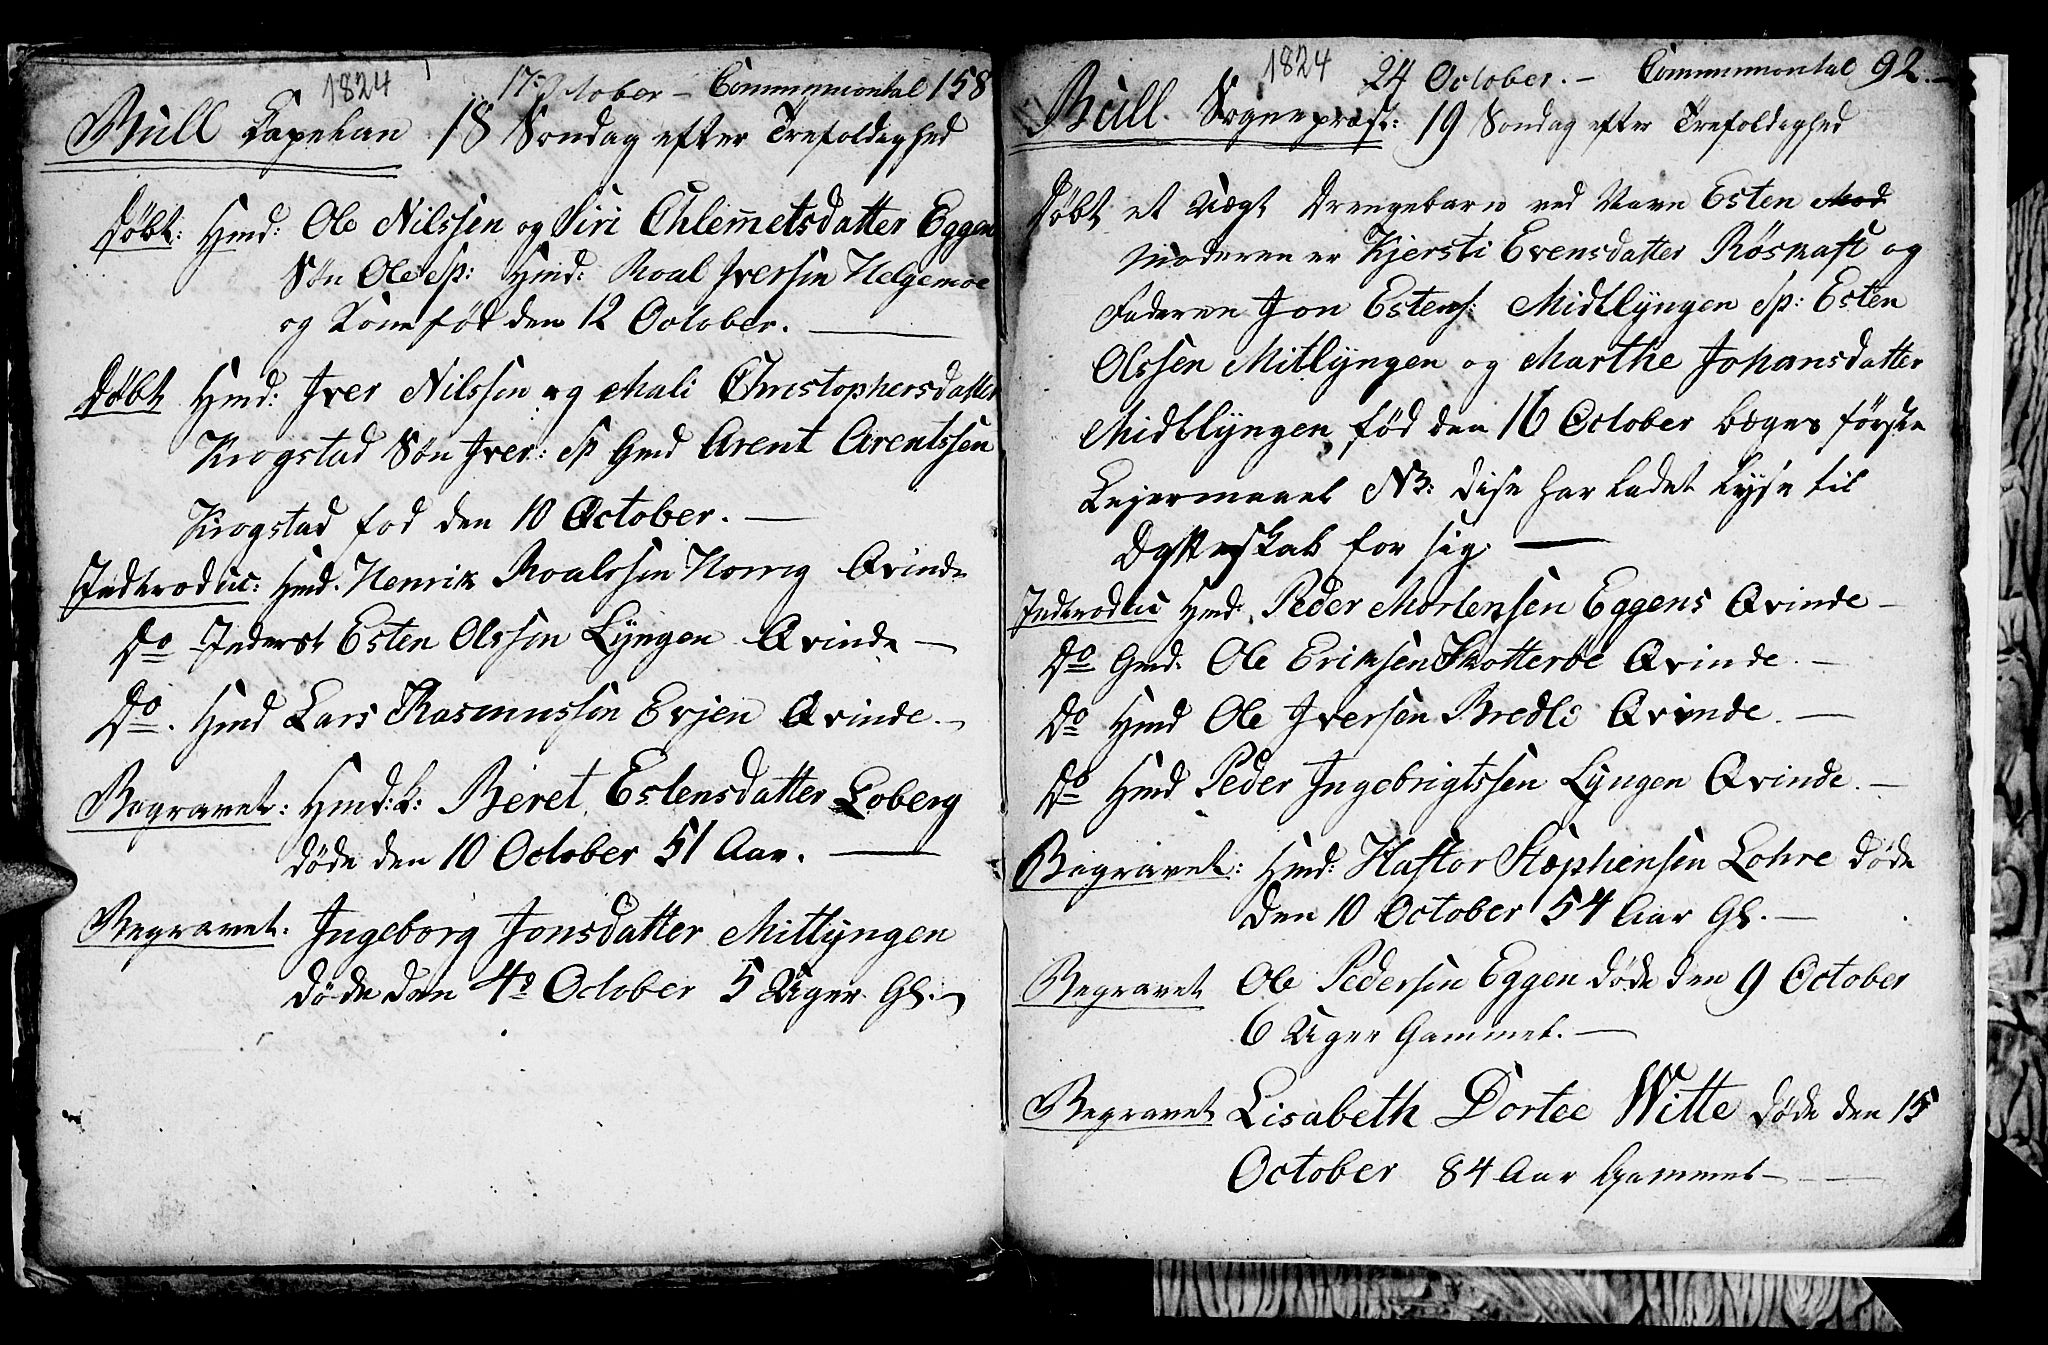 1824 17 October – Communicontal 158
Bull Capelan 18 Sondag efter Trefoldighed
Døbt: Hmd: Ole Nilssen og Siri Chlemetsdatter Eggen
Søn Ole Sp: Hmd: Roal Iversen Helgemoe
og Kone fød den 12 October. —
Døbt Hmd: Iver Nilssen og Mali Christophersdatter
Krogstad Søn Iver: Sp Gmd Arent Arentssen
Krogstad fod den 10 October. —
Indtroduc: Hmd. Henrik Roalssen Qvinde
Do Inderst Esten Olssen Lyngen Qvinde —
Do. Hmd Lars Rasmussen Evjen Qvinde. —
Begravet: Hmd: k: Beret Estensdatter Loberg
døde den 10 October 51 Aar. —
Begravet. Ingeborg Jonsdatter Mitlyngen
døde den 4de October 5 Uger Gl. —
1824 24 October. – Communicontal 92. —
Bull. Sognepræst: 19 Sondag efter Trefoldighed
Døbt et Uægt Drengebarn ved Navn Esten Mod
Moderen er Kjersti Evensdatter Røsnaft og
Faderen Jon Estens: Midtlyngen Sp: Esten
Olssen Mitlyngen og Marthe Johansdatter
Midtlyngen fød den 16 October begges første
Lejermaael NB: disse har ladet lyse til
Ægteskab for sig. —
Indtroduc Hmd. Peder Mortensen Eggens Qvinde —
Do Gmd. Ole Eriksen Skotteroe Qvinde. —
Do Hmd Ole Iversen Bredli Qvinde. —
Do Hmd Peder Ingebrigtssen Lyngen Qvinde. —
Begravet: Hmd: Haftor Stephensen Lohre døde
den 10 October 54 Aar Gl. —
Begravet Ole Pedersen Eggen døde den 9 October
6 Uger Gammel. —
Begravet Lisabeth Dortee Witte døde den 15
October 84 Aar Gammel —